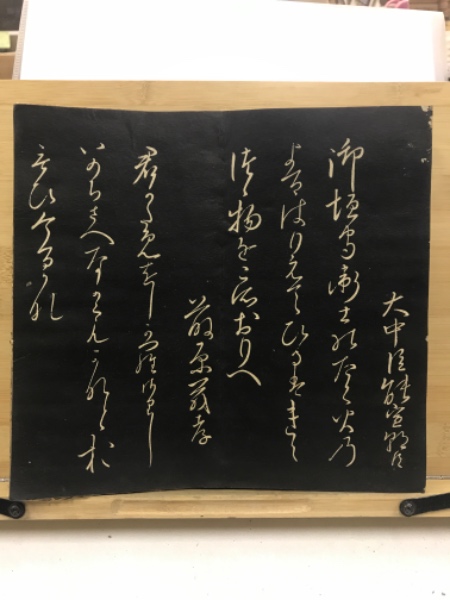 大中臣能宣朝臣
御垣守衛士のたく火乃
よるはもえてひるはきえ
つゝ物をこそおもへ
藤原義孝
君かためをしからさりし
いのちさへなかくもかなとお
もひぬるかな